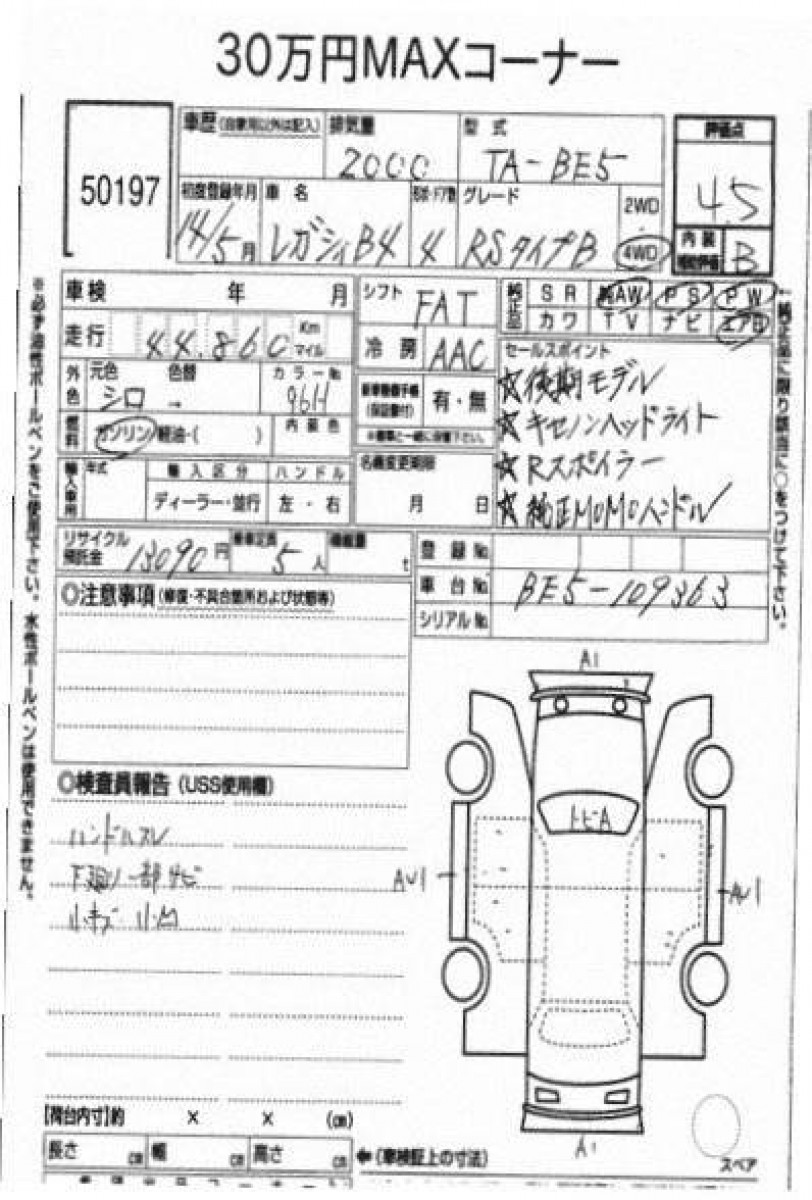 30万円MAXコーナー
50197
車歴 (自家用以外は記入)
排気量
2000
型式
TA-BE5
評価点
4.5
初度登録年月
14/5月
車名
レガシィB4
形状・ドア数
4
グレード
RSタイプB
2WD
4WD
内装
補助評価
B
車検 年 月
シフト
FAT
純正品
SR AW PS PW
カワ TV ナビ エアB
走行
44.860
Km
マイル
冷房
AAC
外色
元色
シロ
色替
→
カラーNo
96H
新車整備手帳
(保証書付)
有・無
※書車と一緒に保管下さい。
燃料
ガソリン/軽油・( )
内装色
セールスポイント
☆後期モデル
☆キセノンヘッドライト
☆Rスポイラー
☆純正MOMOハンドル
輸入車用
年式
輸入区分
ハンドル
ディーラー・並行
左・右
名義変更期限
月 日
リサイクル
預託金
13090円
乗車定員
5人
積載量
t
登録No.
車台No.
BE5-109363
シリアルNo.
◎注意事項 (修復・不具合箇所および状態等)
◎検査員報告 (USS使用欄)
ハンドルスレ
下廻り一部サビ
小キズ 小凹
A1
トビA
AU1
AU1
A1
スペア
【荷台内寸】約 × × (cm)
長さ cm 幅 cm 高さ cm
←(車検証上の寸法)
※必ず油性ボールペンをご使用下さい。水性ボールペンは使用できません。
純正品に限り該当に○をつけて下さい。